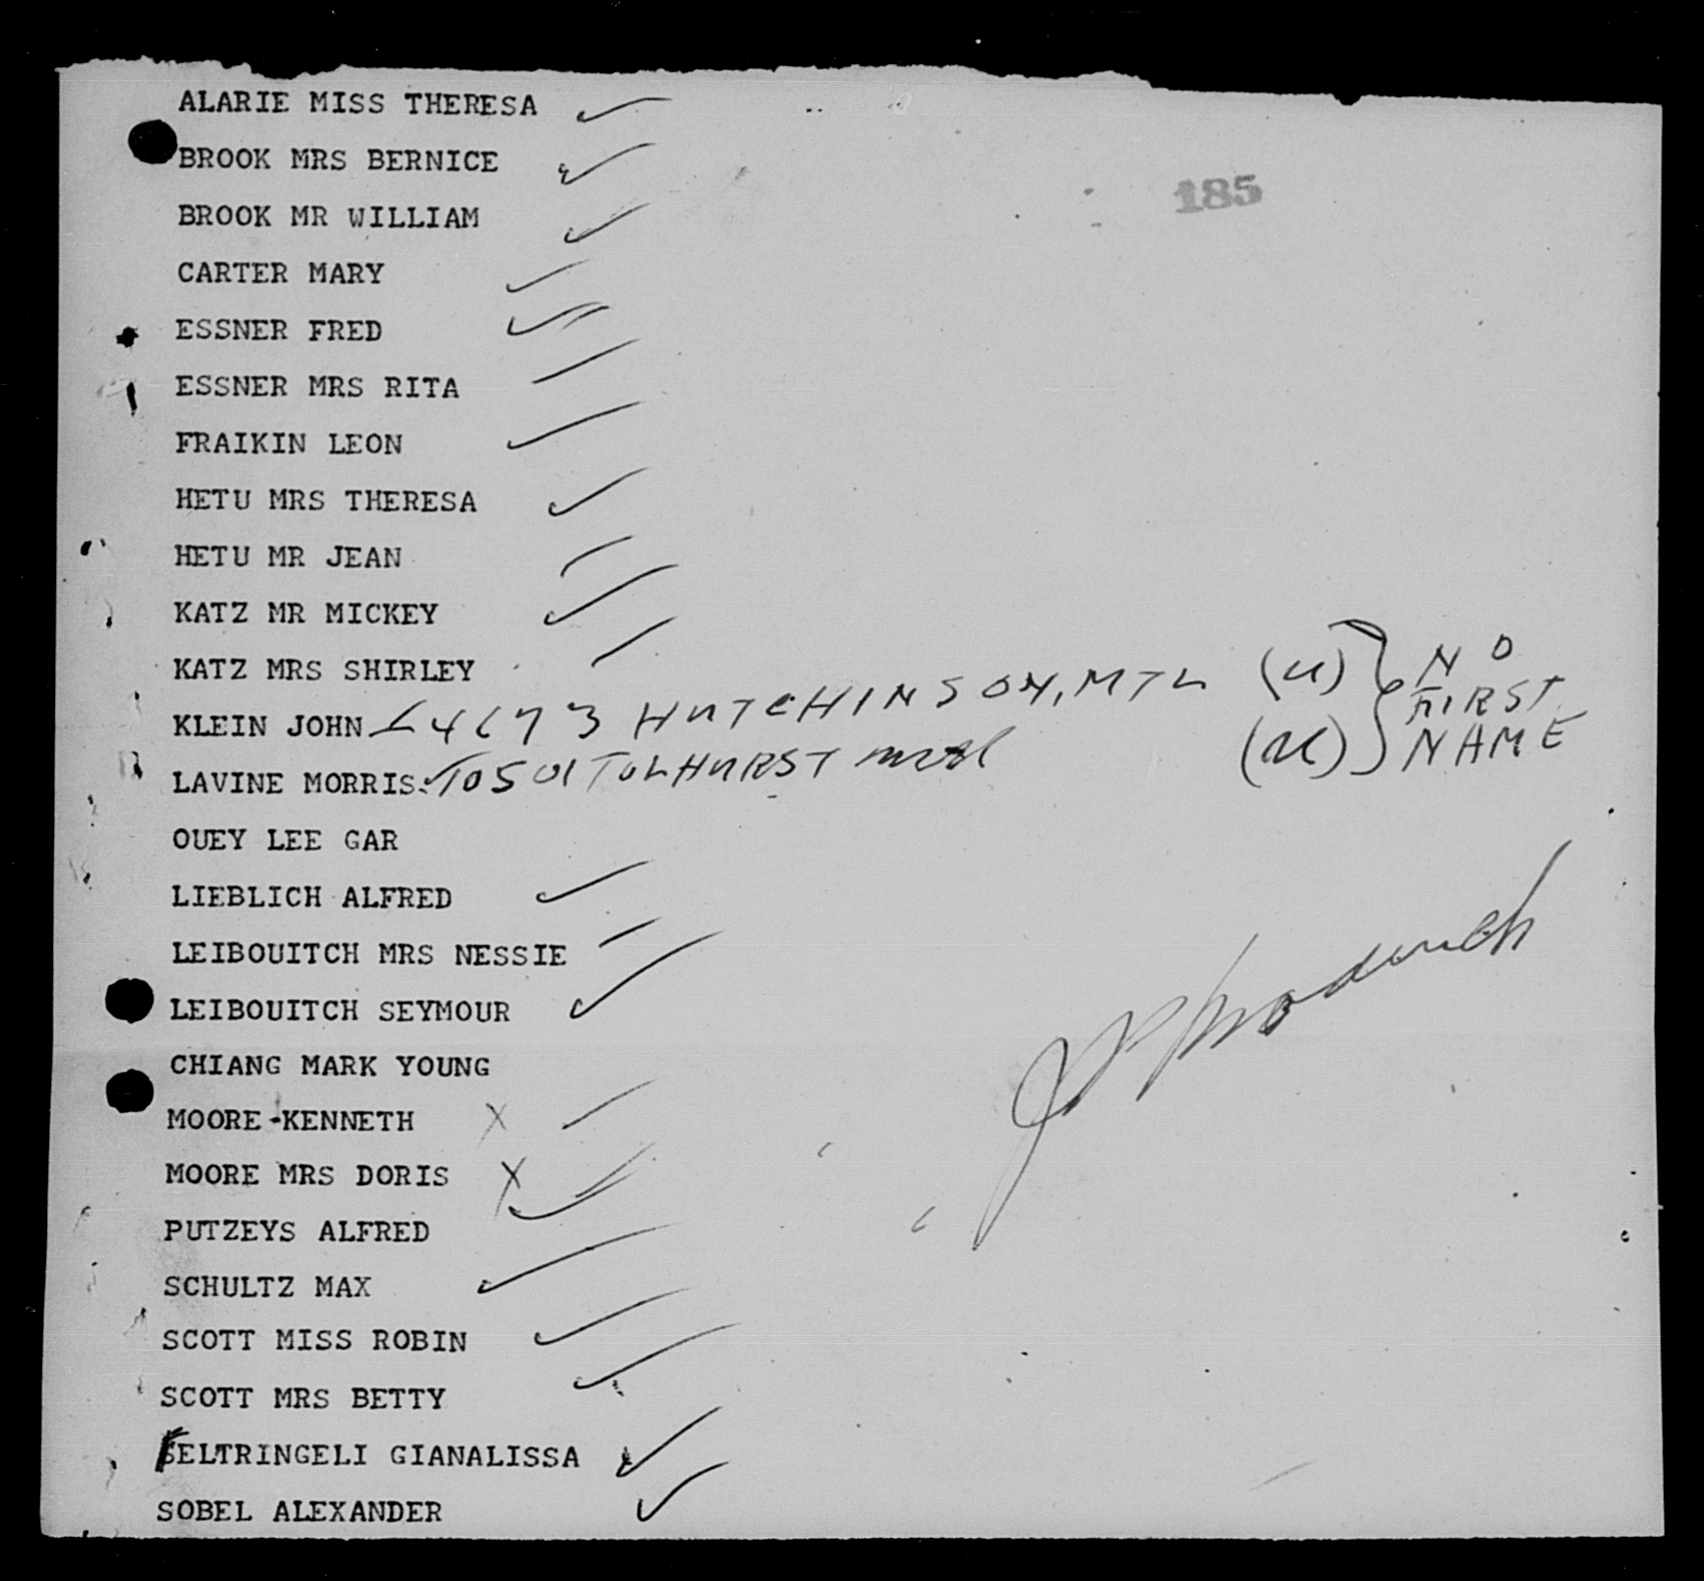 ALARIE MISS THERESA
BROOK MRS BERNICE
185
BROOK MR WILLIAM
CARTER MARY
ESSNER FRED
ESSNER MRS RITA
FRAIKIN LEON
HETU MRS THERESA
HETU MR JEAN
KATZ MR MICKEY
KATZ MRS SHIRLEY
KLEIN JOHN HUTCHINSON, MTL (U) } NO FIRST NAME
LAVINE MORRIS TOLHURST Mtl (U)
OUEY LEE GAR
LIEBLICH ALFRED
LEIBOUITCH MRS NESSIE
LEIBOUITCH SEYMOUR
CHIANG MARK YOUNG
MOORE-KENNETH X
MOORE MRS DORIS X
PUTZEYS ALFRED
SCHULTZ MAX
SCOTT MISS ROBIN
SCOTT MRS BETTY
SELTRINGELI GIANALISSA
SOBEL ALEXANDER